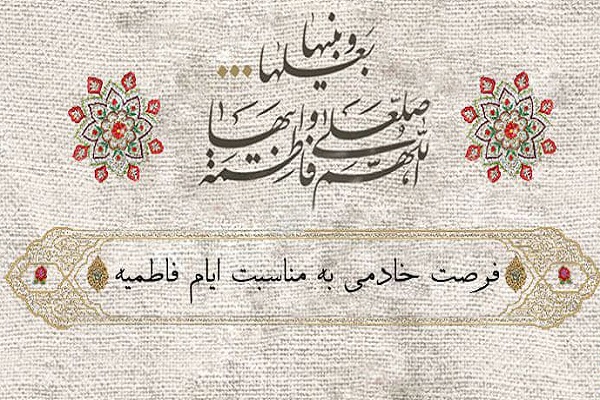 اللّهم صلّ علی فاطمة و ابیها
و بعلها و بنیها...
فرصت خادمی به مناسبت ایام فاطمیه